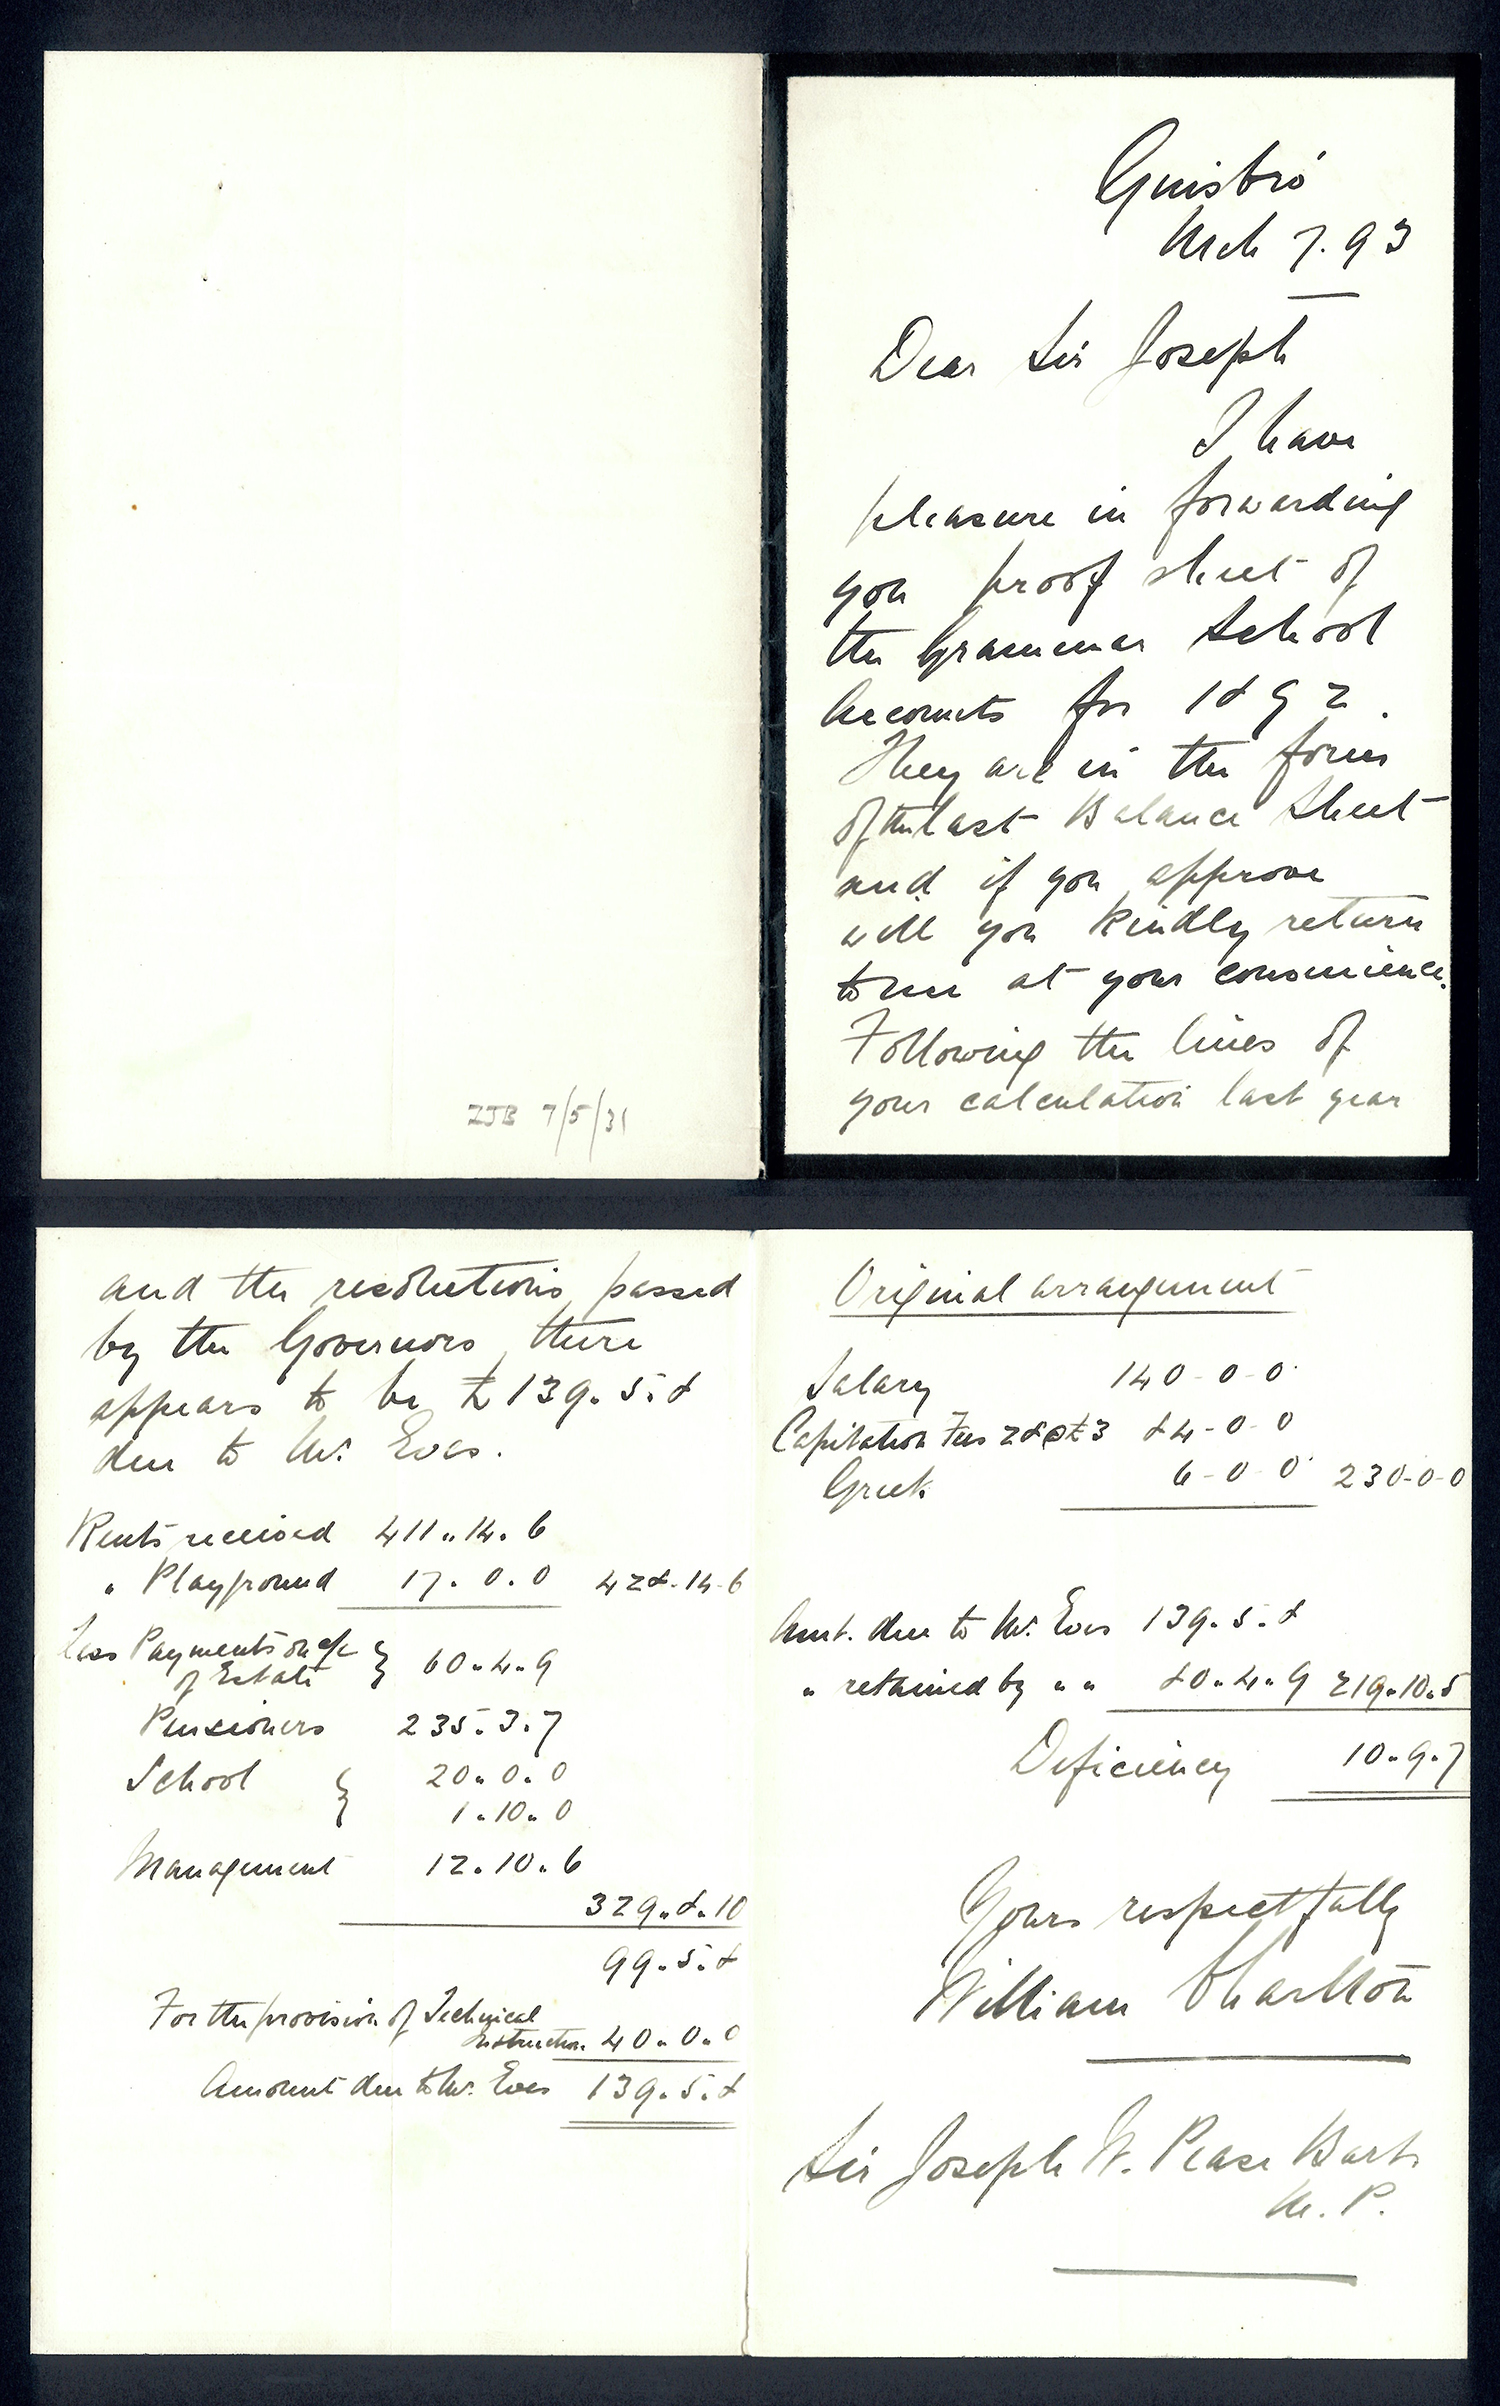 ZJB 7/5/31
Guisbro'
Mch 7. 93
Dear Sir Joseph
I have
pleasure in forwarding
you proof sheet of
the Grammar School
Accounts for 1892.
They are in the form
of the last Balance Sheet
and if you approve
will you kindly return
to me at your convenience.
Following the lines of
your calculation last year
and the resolutions passed
by the Governors, there
appears to be £139.5.8
due to Mr. Eves.
Rents received 411.14.6
" Playground 17.0.0 428.14.6
Less Payments on a/c
of Estate } 60.4.9
Pensioners 235.3.7
School } 20.0.0
1.10.0
Management 12.10.6
329.8.10
99.5.8
For the provision of Technical
Instruction 40.0.0
Amount due to Mr. Eves 139.5.8
Original arrangement
Salary 140-0-0
Capitation Fees 28@£3 84-0-0
Greek 6-0-0 230-0-0
Amt. due to Mr. Eves 139.5.8
" retained by " " 80.4.9 219.10.5
Deficiency 10.9.7
Yours respectfully
William Charlton
Sir Joseph W. Pease Bart.
M. P.